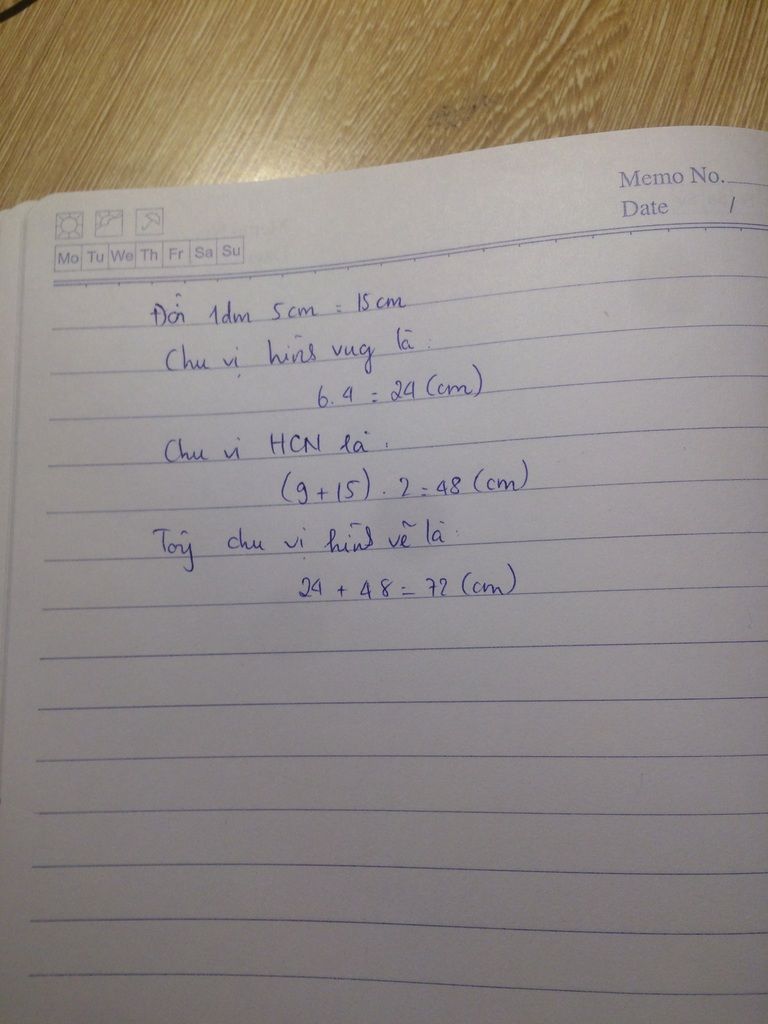 Memo No.
Date /
Mo Tu We Th Fr Sa Su
Đổi 1dm 5cm = 15cm
Chu vi hình vug là:
6.4 = 24 (cm)
Chu vi HCN là:
(9+15).2=48 (cm)
chu vi hình vẽ là:
24 + 48 = 72 (cm)